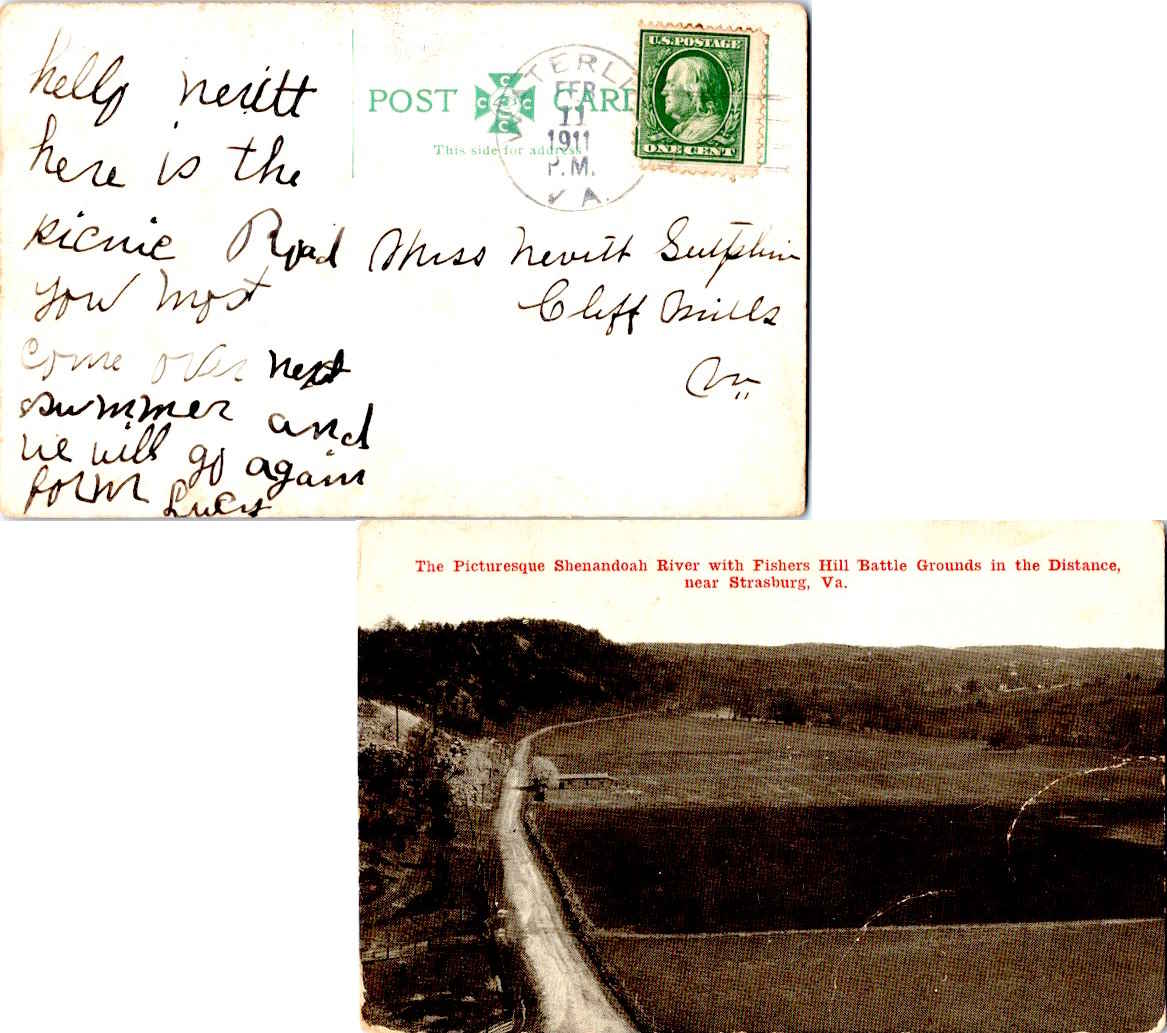 hello nevitt
here is the
picnic Road
you most
come over next
summer and
we will go again
form Lucy
POST CARD
C C C C
This side for address
FEB
11
1911
P.M.
VA.
U.S. POSTAGE
ONE CENT
Miss Nevitt Sutphin
Cliff Mills
Va
The Picturesque Shenandoah River with Fishers Hill Battle Grounds in the Distance,
near Strasburg, Va.